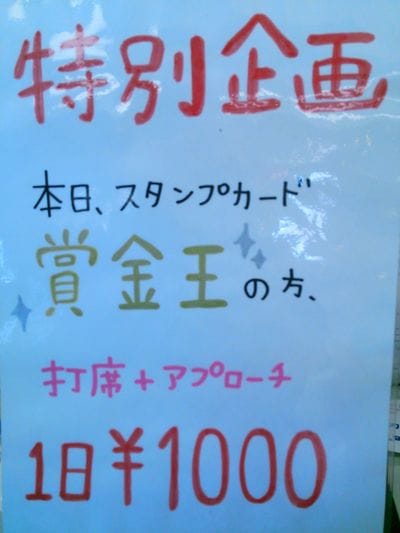 特別企画
本日、スタンプカード
賞金王の方、
打席+アプローチ
1日¥1000